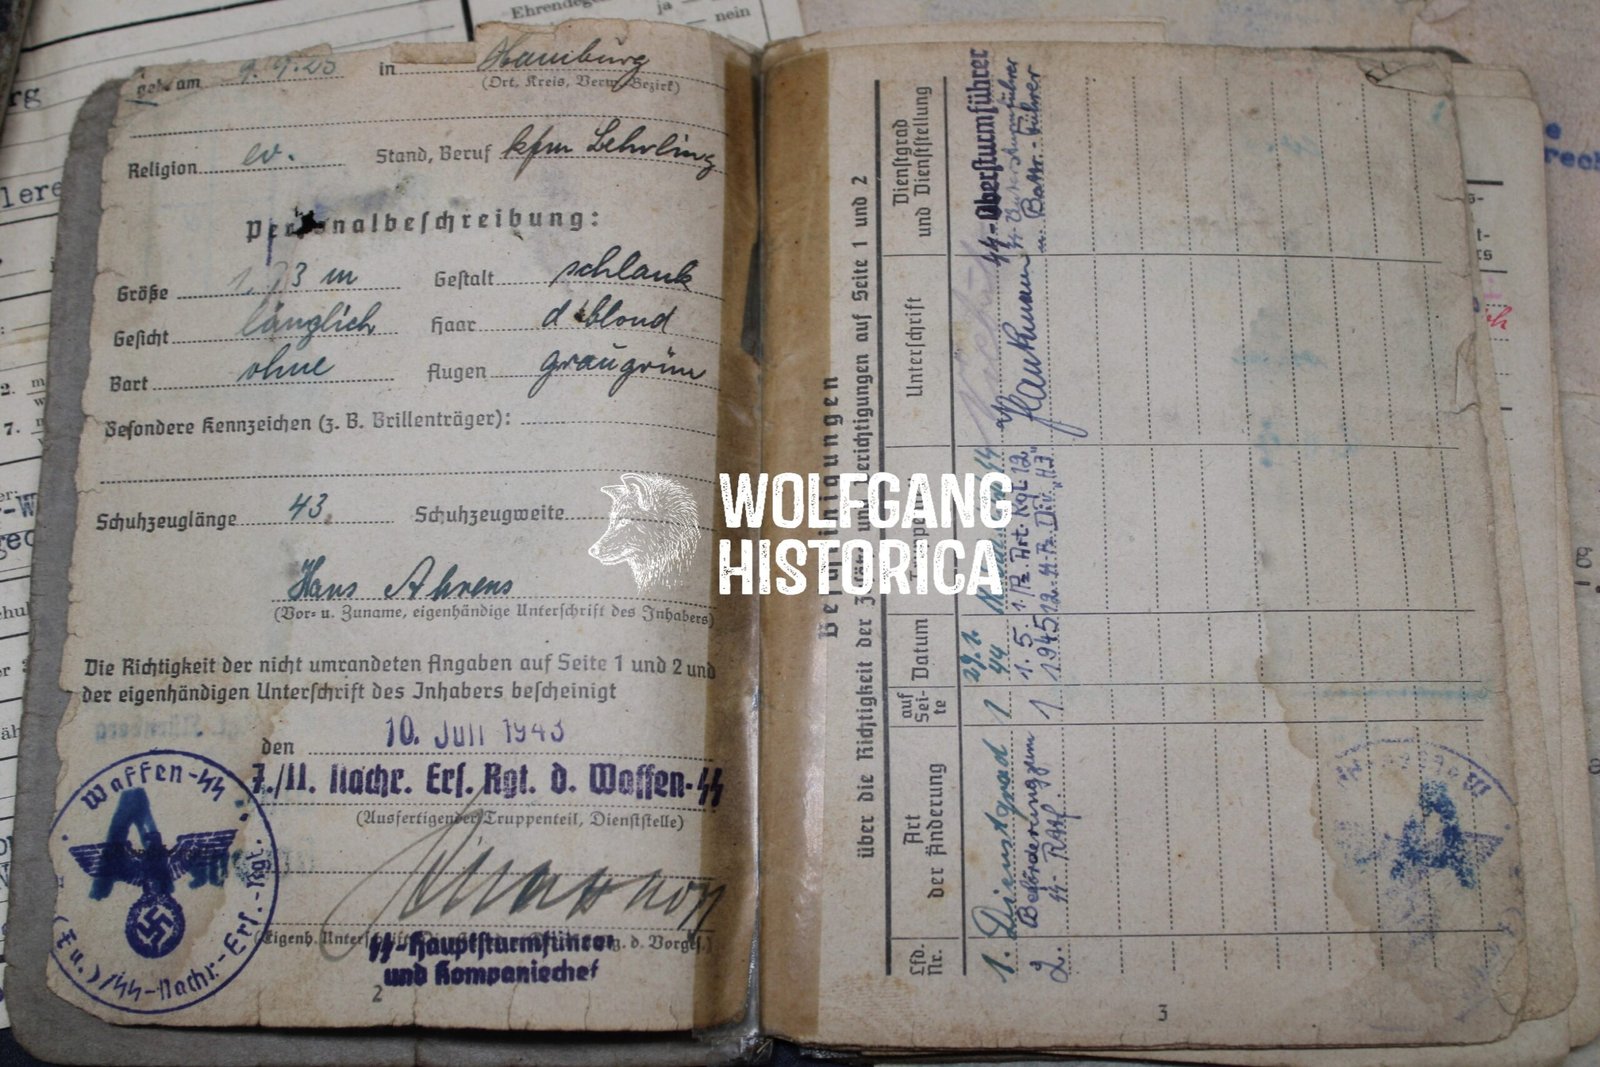 Ehrendege
ja
nein
geb. am 9.9.25 in Hamburg
(Ort, Kreis, Verw.-Bezirk)
Religion ev. Stand, Beruf kfm Lehrling
Personalbeschreibung:
Größe 1,73 m Gestalt schlank
Gesicht länglich Haar d blond
Bart ohne Augen graugrün
Besondere Kennzeichen (z. B. Brillenträger):
Schuhzeuglänge 43 Schuhzeugweite
Hans Ahrens
(Vor- u. Zuname, eigenhändige Unterschrift des Inhabers)
Die Richtigkeit der nicht umrandeten Angaben auf Seite 1 und 2 und
der eigenhändigen Unterschrift des Inhabers bescheinigt
den 10. Juli 1943
7./II. Nachr. Ers. Rgt. d. Waffen-SS
(Ausfertigender Truppenteil, Dienststelle)
SS-Hauptsturmführer
und Kompaniechef
Waffen-SS
SS-Nachr.-Ers.-Rgt.
2
Bescheinigungen
über die Richtigkeit der Zusätze und Berichtigungen auf Seite 1 und 2
Lfd. Nr.
Art der Änderung
auf Seite
Datum
Unterschrift
Dienstgrad und Dienststellung
1. Dienstgrad 1 29.2. 44
SS-Obersturmführer
2. Beförderung zum 1 1.5. 1./Pz. Art. Rgt. 12
1945 12. SS-Pz. Div. "HJ"
Haukmann
SS-Untersturmführer
u. Battr.-Führer
3
WOLFGANG
HISTORICA